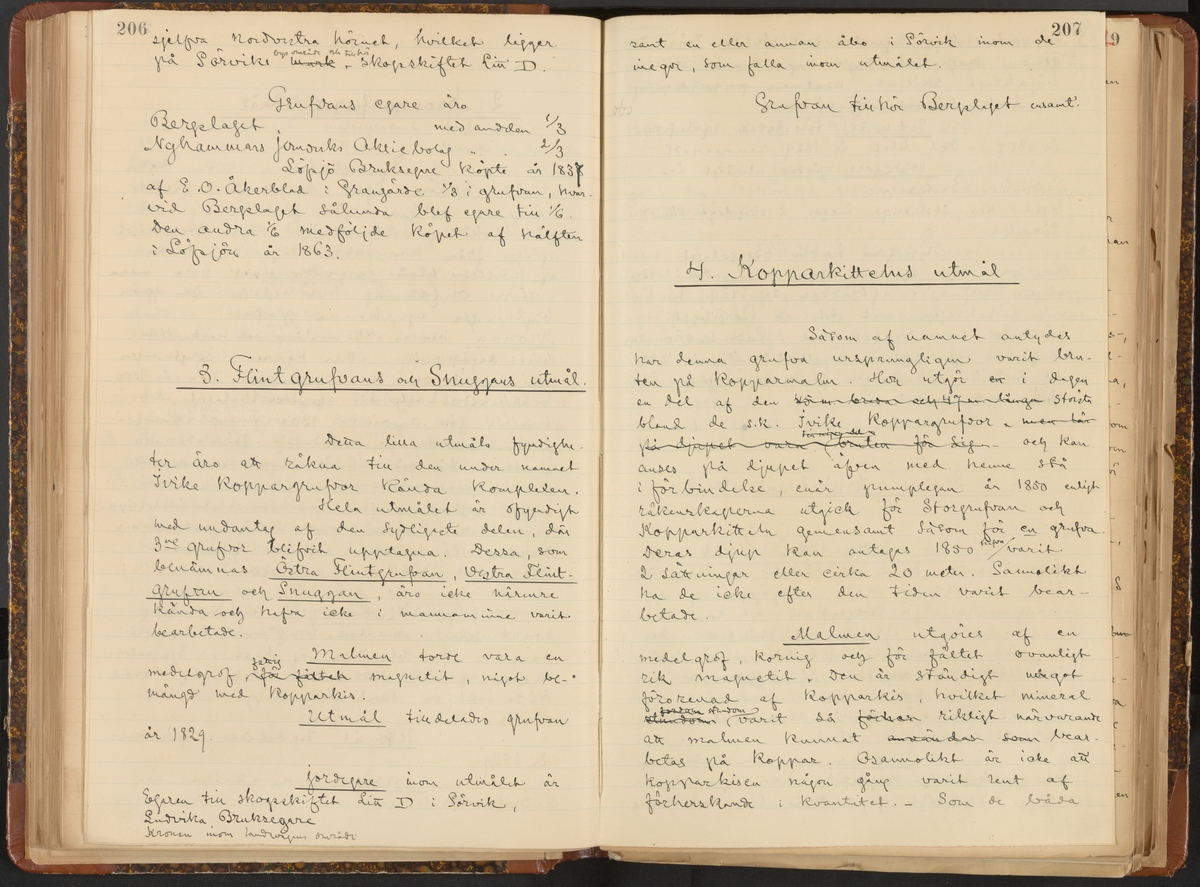 206
sjelfva Nordvestra hörnet, hvilket ligger
på Sörviks mark, skogsskiftet Litt D.
Grufvans egare äro
Bergslaget med andelen 1/3
Nyhammars Jernbruks Aktiebolag " . 2/3
Löfsjö Bruksegare köpte år 1837
af E. O. Åkerblad i Grangärde 1/3 i grufvan, hvar-
vid Bergslaget sålunda blef egare till 1/6.
Den andra 1/6 medföljde köpet af hälften
i Löfsjön år 1863.
3. Flintgrufvans och Snuggans utmål.
Detta lilla utmåls fyndighe-
ter äro att räkna till den under namnet
Ivike Koppargrufvor kända komplexen.
Hela utmålet är ofyndigt
med undantag af den sydligaste delen, där
3ne grufvor blifvit upptagna. Dessa, som
benämnas Östra Flintgrufvan, Vestra Flint-
grufvan och Snuggan, äro icke närmre
kända och hafva icke i mannaminne varit
bearbetade.
Malmen torde vara en
medelgrof, magnetit, något be-
mängd med kopparkis.
Utmål tilldelades grufvan
år 1829
Jordegare inom utmålet är
Egaren till skogsskiftet Litt D i Sörvik,
Ludvika Bruksegare
Kronan inom landsvägens område
207
samt en eller annan åbo i Sörvik inom de
inegor, som falla inom utmålet.
Grufvan tillhör Bergslaget ensamt.
4. Kopparkittelns utmål
Såsom af namnet antydes
har denna grufva ursprungligen varit bru-
ten på kopparmalm. Hon utgör en i dagen
en del af den 12 m breda och 47 m långa största
bland de s.k. Ivike Koppargrufvor, men lär
på djupet vara bruten för sig och kan
anses på djupet äfven med henne stå
i förbindelse, enär pumplegan år 1850 enligt
räkenskaperna utgick för Storgrufvan och
Kopparkitteln gemensamt såsom för en grufva.
Deras djup kan antagas 1850 hafva varit
2 sättningar eller cirka 20 meter. Sannolikt
ha de icke efter den tiden varit bear-
betade.
Malmen utgöres af en
medelgrof, kornig och för fältet ovanligt
rik magnetit. Den är ständigt något
förorenad af kopparkis, hvilket mineral
stundom varit så rikligt närvarande
att malmen kunnat användas som bear-
betas på koppar. Osannolikt är icke att
kopparkisen någon gång varit rent af
förherskande i kvantitet. – Som de båda